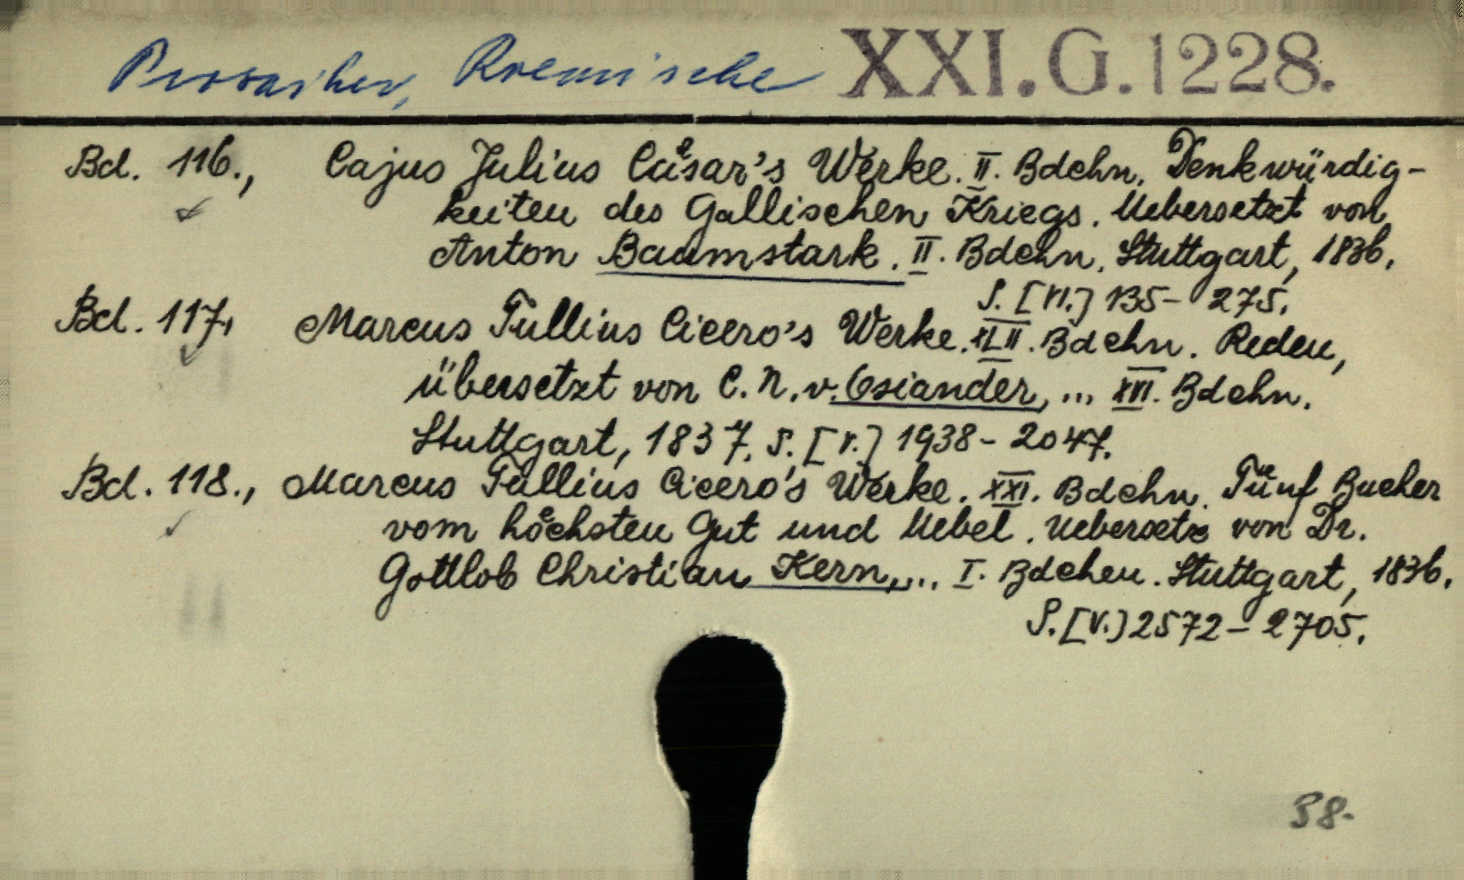 Prosaiker, Roemische XXI.G.1228.
Bd. 116., Cajus Julius Cäsar's Werke. II. Bdchn. Denkwürdig-
keiten des Gallischen Kriegs. Uebersetzt von
Anton Baumstark. II. Bdchn. Stuttgart, 1836.
S. [VI.] 135- 275.
Bd. 117, Marcus Tullius Cicero's Werke. Bdchn. Reden,
übersetzt von C. N. v. Osiander, ... XVI. Bdchn.
Stuttgart, 1837. S. [V.] 1938- 2047.
Bd. 118., Marcus Tullius Cicero's Werke. XXI. Bdchn. Fünf Bucher
vom höchsten Gut und Uebel. Uebersetz von Dr.
Gottlob Christian Kern, ... I. Bdchen. Stuttgart, 1836.
S. [V.] 2572- 2705.
38.